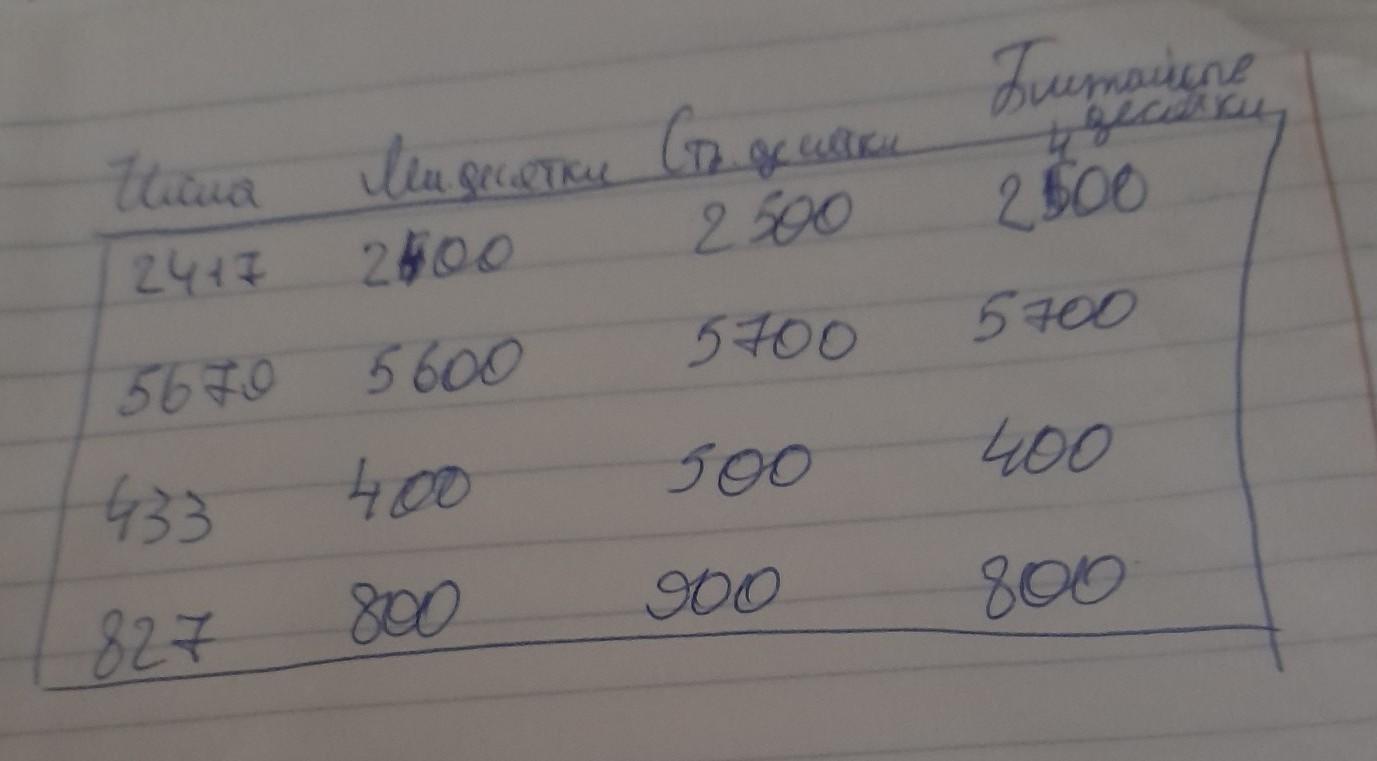 Числа Мл. десятки Ст. десятки Ближайшие десятки
2417 2400 2500 2400
5670 5600 5700 5700
433 400 500 400
827 800 900 800